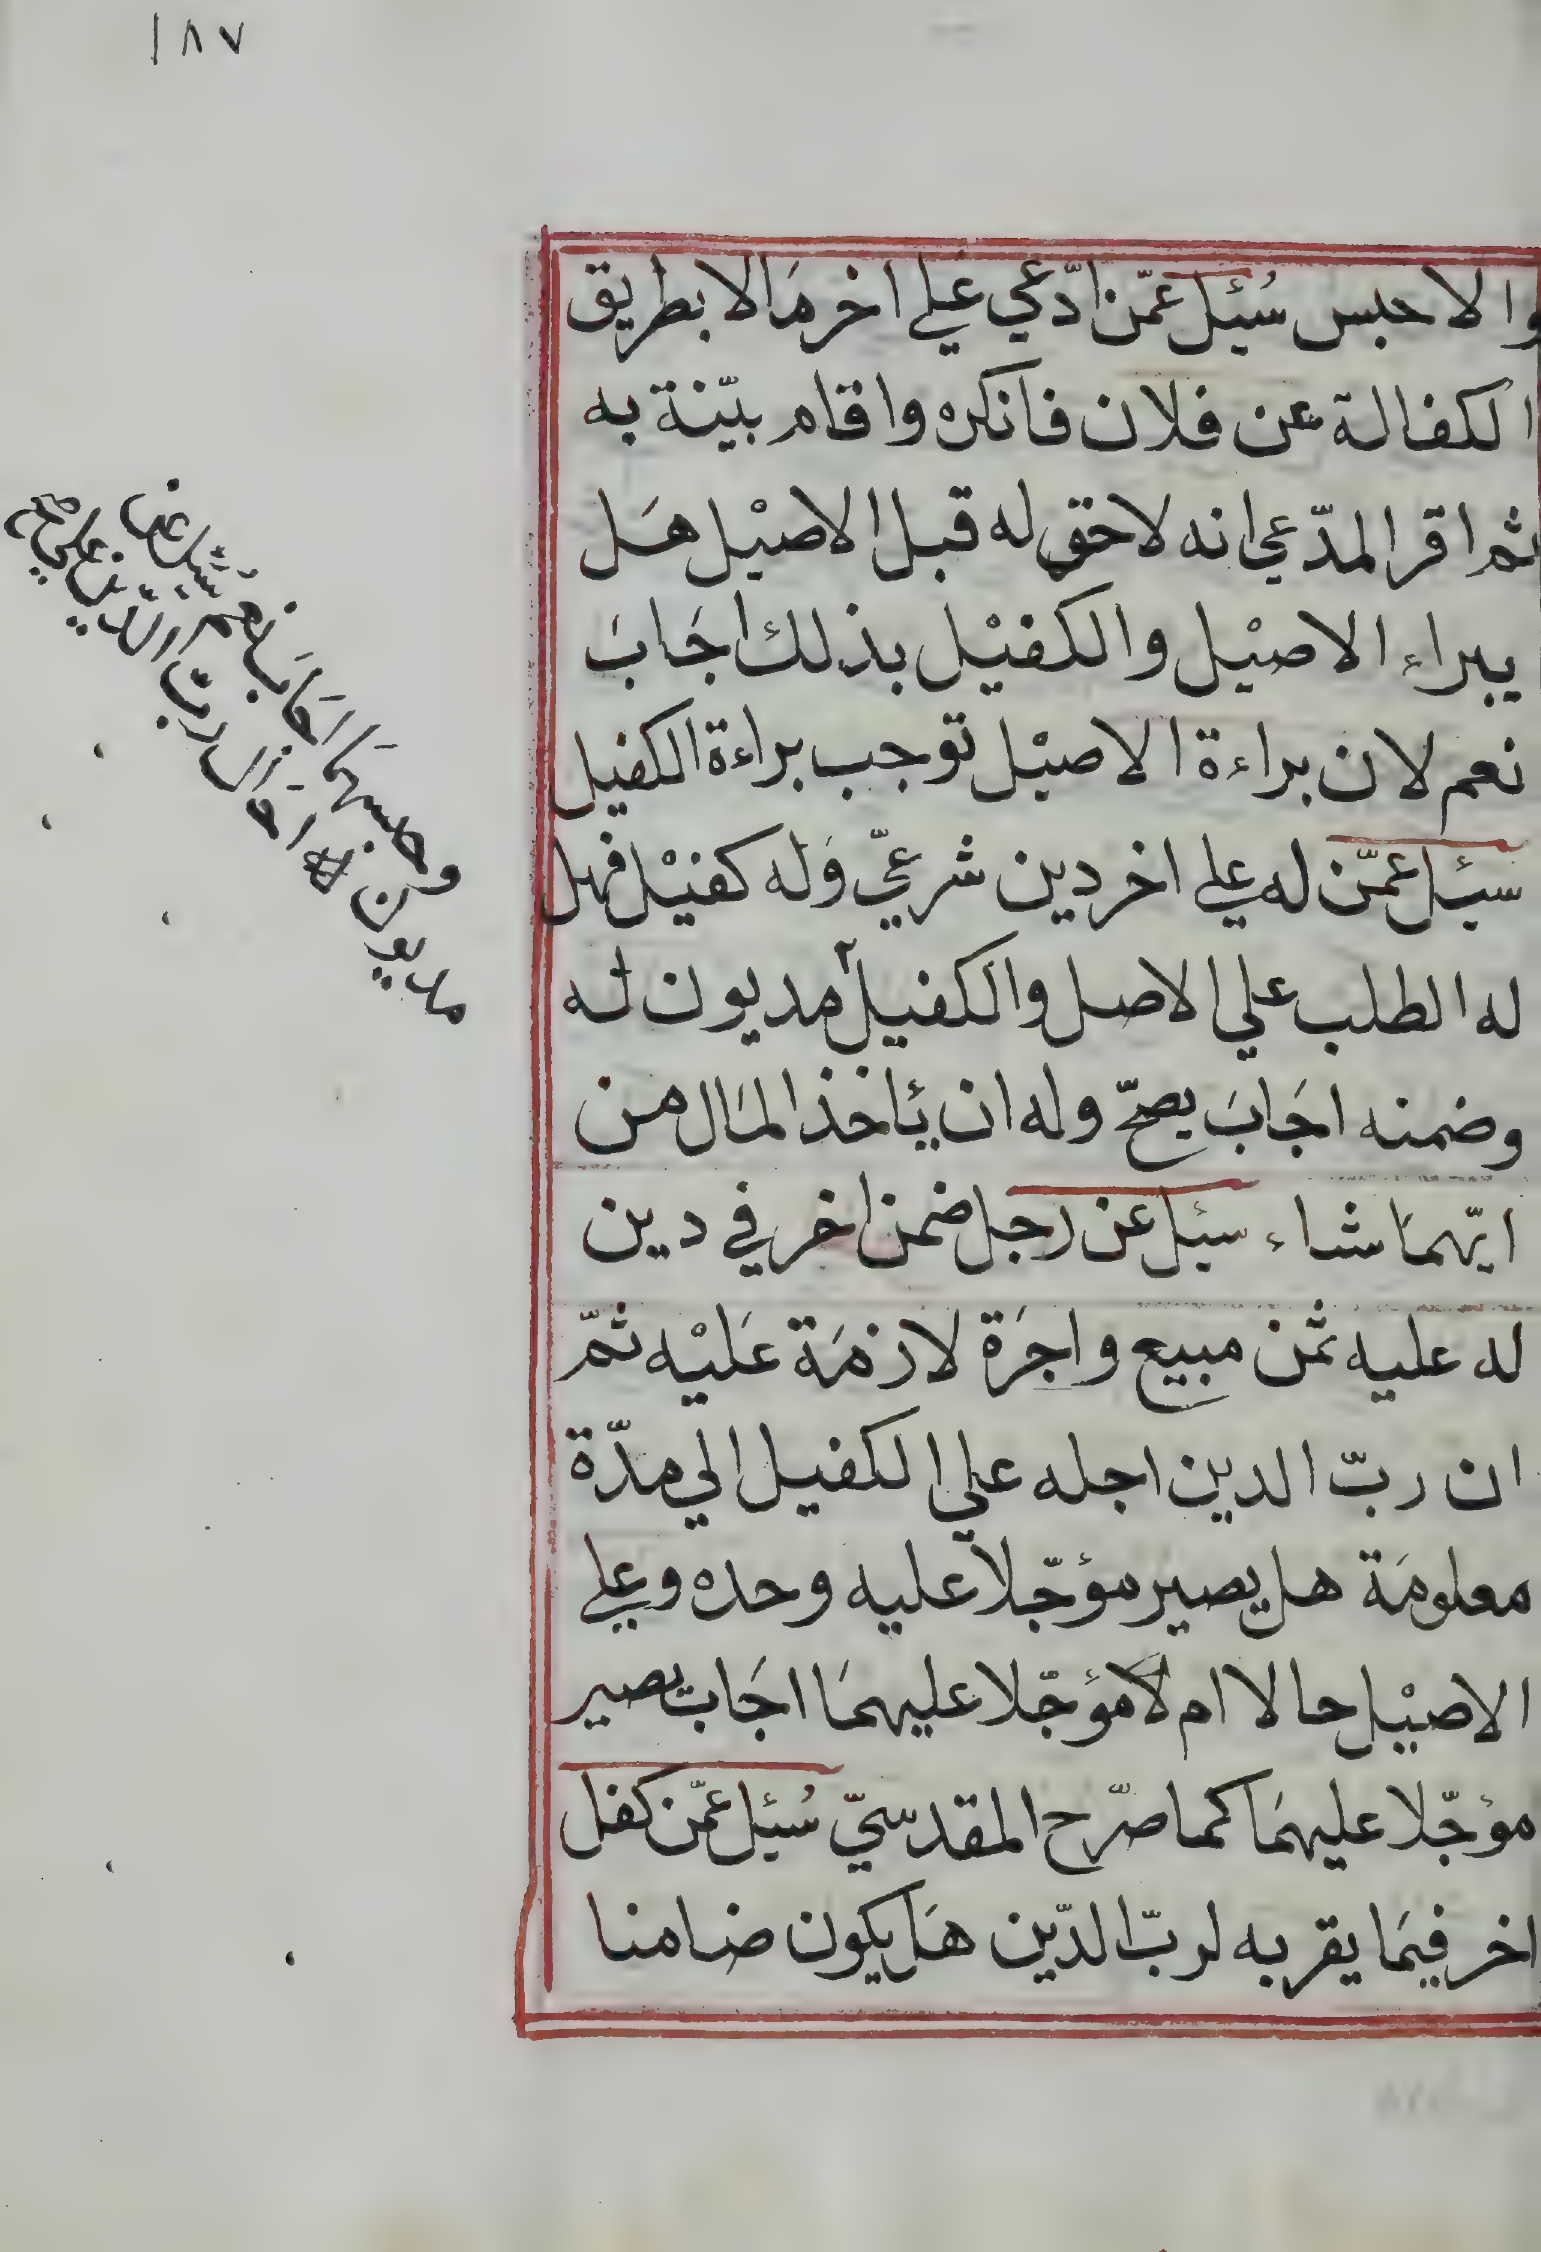 ١٨٧
والا حبس سُئِل عمّن ادّعي علي اخر مَالا بطريق
الكفالة عن فلان فانكره واقام بيّنة به
ثم اقر المدّعي انه لا حق له قبل الاصيْل هَل
يبراء الاصيْل والكفيْل بذلك اجَابَ
نعم لان براءة الاصيْل توجب براءة الكفيل
سئل عمّن له علي اخر دين شرعيّ وَله كفيْل فهل
له الطلب علي الاصل والكفيل٢ مديون له
وضمنه اجَابَ يصحّ وله ان يئاخذ المَال من
ايّهمَا شاء سئل عن رجل ضمن اخر في دين
له عليه ثمن مبيع واجرَة لازمَة عَليْه ثمّ
ان ربّ الدين اجله علي الكفيل الي مدّة
معلومَة هل يصير مؤجّلا عليه وحده وعلي
الاصيْل حالا ام لا مؤجّلا عليهمَا اجَابَ يصير
مؤجّلا عليهمَا كما صرّح المقدسيّ سُئِل عمّن كفل
اخر فيمَا يقر به لربّ الدّين هَل يكون ضامنا
وحبسهمَا اجَابَ نعم سُئِل عن
مديون له احَال ربّ الدّين علي